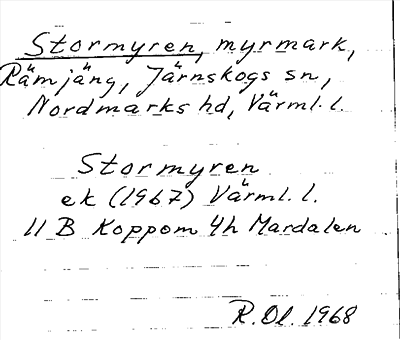 Stormyren, myrmark,
Rämjäng, Järnskogs sn,
Nordmarks hd, Värml. l.
Stormyren
ek (1967) Värml. l.
11 B Koppom 4h Mardalen
R. Ol. 1968